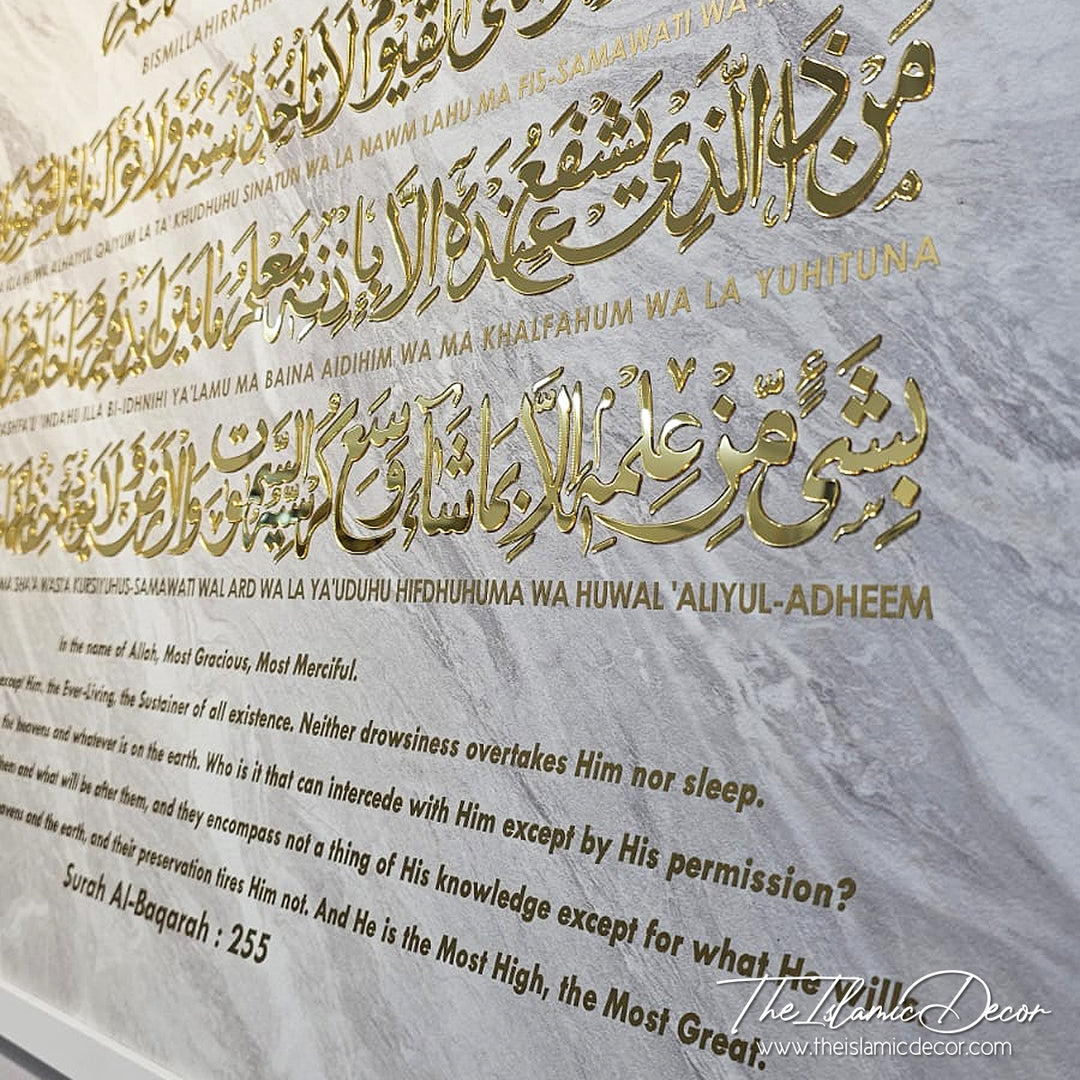 BISMILLAHIRRAH
الْقَيُّومُ لَا تَأْخُذُهُ سِنَةٌ وَلَا نَوْمٌ لَهُ مَا فِي السَّمَوَاتِ
HUWA ALHAIYUL QAIYUM LA TA' KHUDHUHU SINATUN WA LA NAWM LAHU MA FIS-SAMAWATI WA
مَنْ ذَا الَّذِي يَشْفَعُ عِنْدَهُ إِلَّا بِإِذْنِهِ يَعْلَمُ مَا بَيْنَ أَيْدِيهِمْ وَمَا خَلْفَهُمْ
YASHFA'U 'INDAHU ILLA BI-IDHNIHI YA'LAMU MA BAINA AIDIHIM WA MA KHALFAHUM WA LA YUHITUNA
بِشَيْءٍ مِّنْ عِلْمِهِ إِلَّا بِمَا شَآءَ وَسِعَ كُرْسِيُّهُ السَّمَوَاتِ وَالْأَرْضَ وَلَا يَئُودُهُ حِفْظُهُمَا
MA SHA'A WASI'A KURSIYUHUS-SAMAWATI WAL ARD WA LA YA'UDUHU HIFDHUHUMA WA HUWAL 'ALIYUL-ADHEEM
In the name of Allah, Most Gracious, Most Merciful.
except Him, the Ever-Living, the Sustainer of all existence. Neither drowsiness overtakes Him nor sleep.
the heavens and whatever is on the earth. Who is it that can intercede with Him except by His permission?
them and what will be after them, and they encompass not a thing of His knowledge except for what He wills.
heavens and the earth, and their preservation tires Him not. And He is the Most High, the Most Great.
Surah Al-Baqarah : 255
TheIslamicDecor
www.theislamicdecor.com